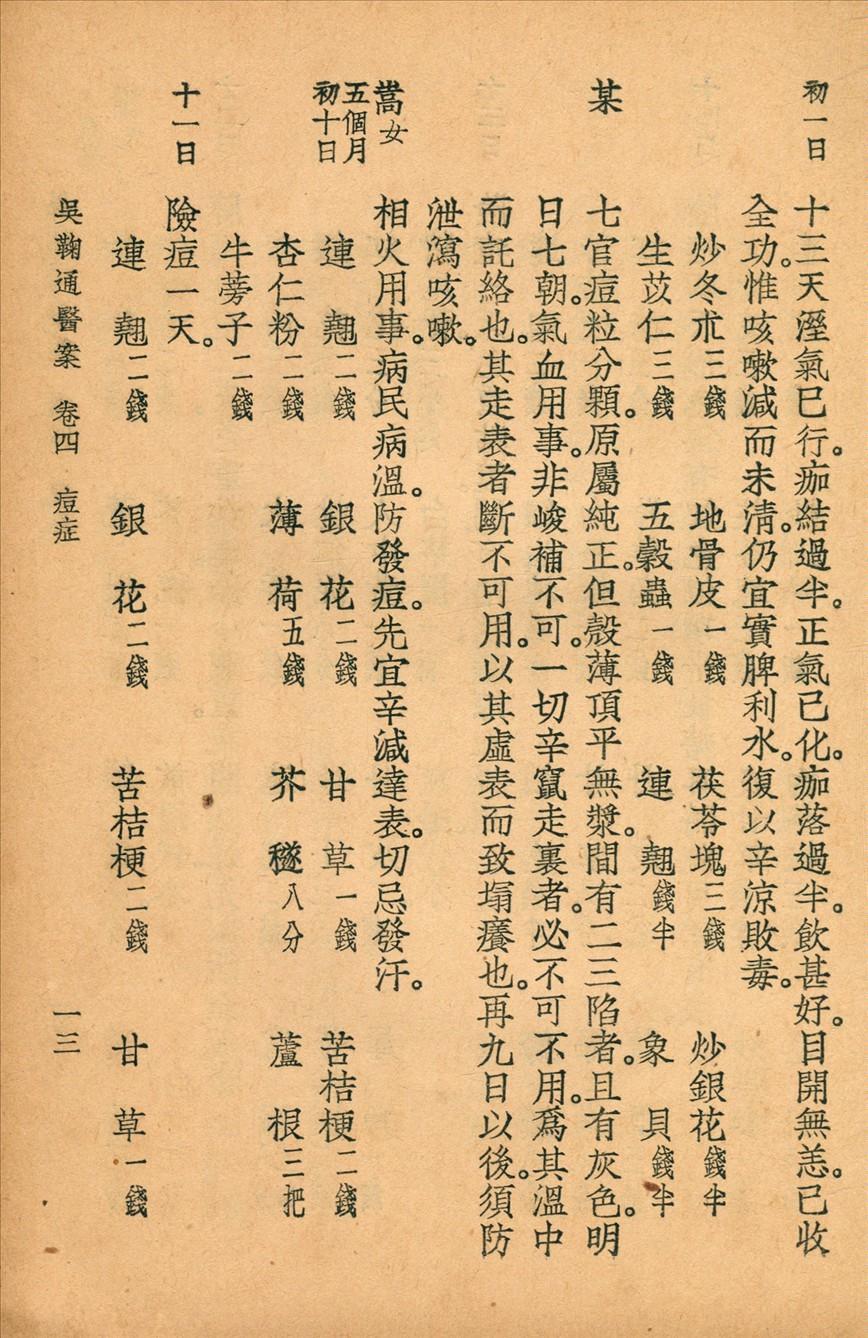 初一日　十三天溼氣已行。痂結過半。正氣已化。痂落過半。飲甚好。目開無恙。已收
全功。惟咳嗽減而未清。仍宜實脾利水。復以辛涼敗毒。
炒冬朮三錢　地骨皮一錢　茯苓塊三錢　炒銀花錢半
生苡仁三錢　五穀蟲一錢　連翹錢半　象貝錢半
某　七官痘粒分顆。原屬純正。但殼薄頂平無漿。間有二三陷者。且有灰色。明
日七朝。氣血用事。非峻補不可。一切辛竄走裏者。必不可不用。爲其溫中
而託絡也。其走表者斷不可用。以其虛表而致塌癢也。再九日以後。須防
泄瀉咳嗽。
蒿女　五個月　初十日　相火用事。病民病溫。防發痘。先宜辛減達表。切忌發汗。
連翹二錢　銀花二錢　甘草一錢　苦桔梗二錢
杏仁粉二錢　薄荷五錢　芥穟八分　蘆根三把
牛蒡子二錢
十一日　險痘一天。
連翹二錢　銀花二錢　苦桔梗二錢　甘草一錢
吳鞠通醫案　卷四　痘症　一三